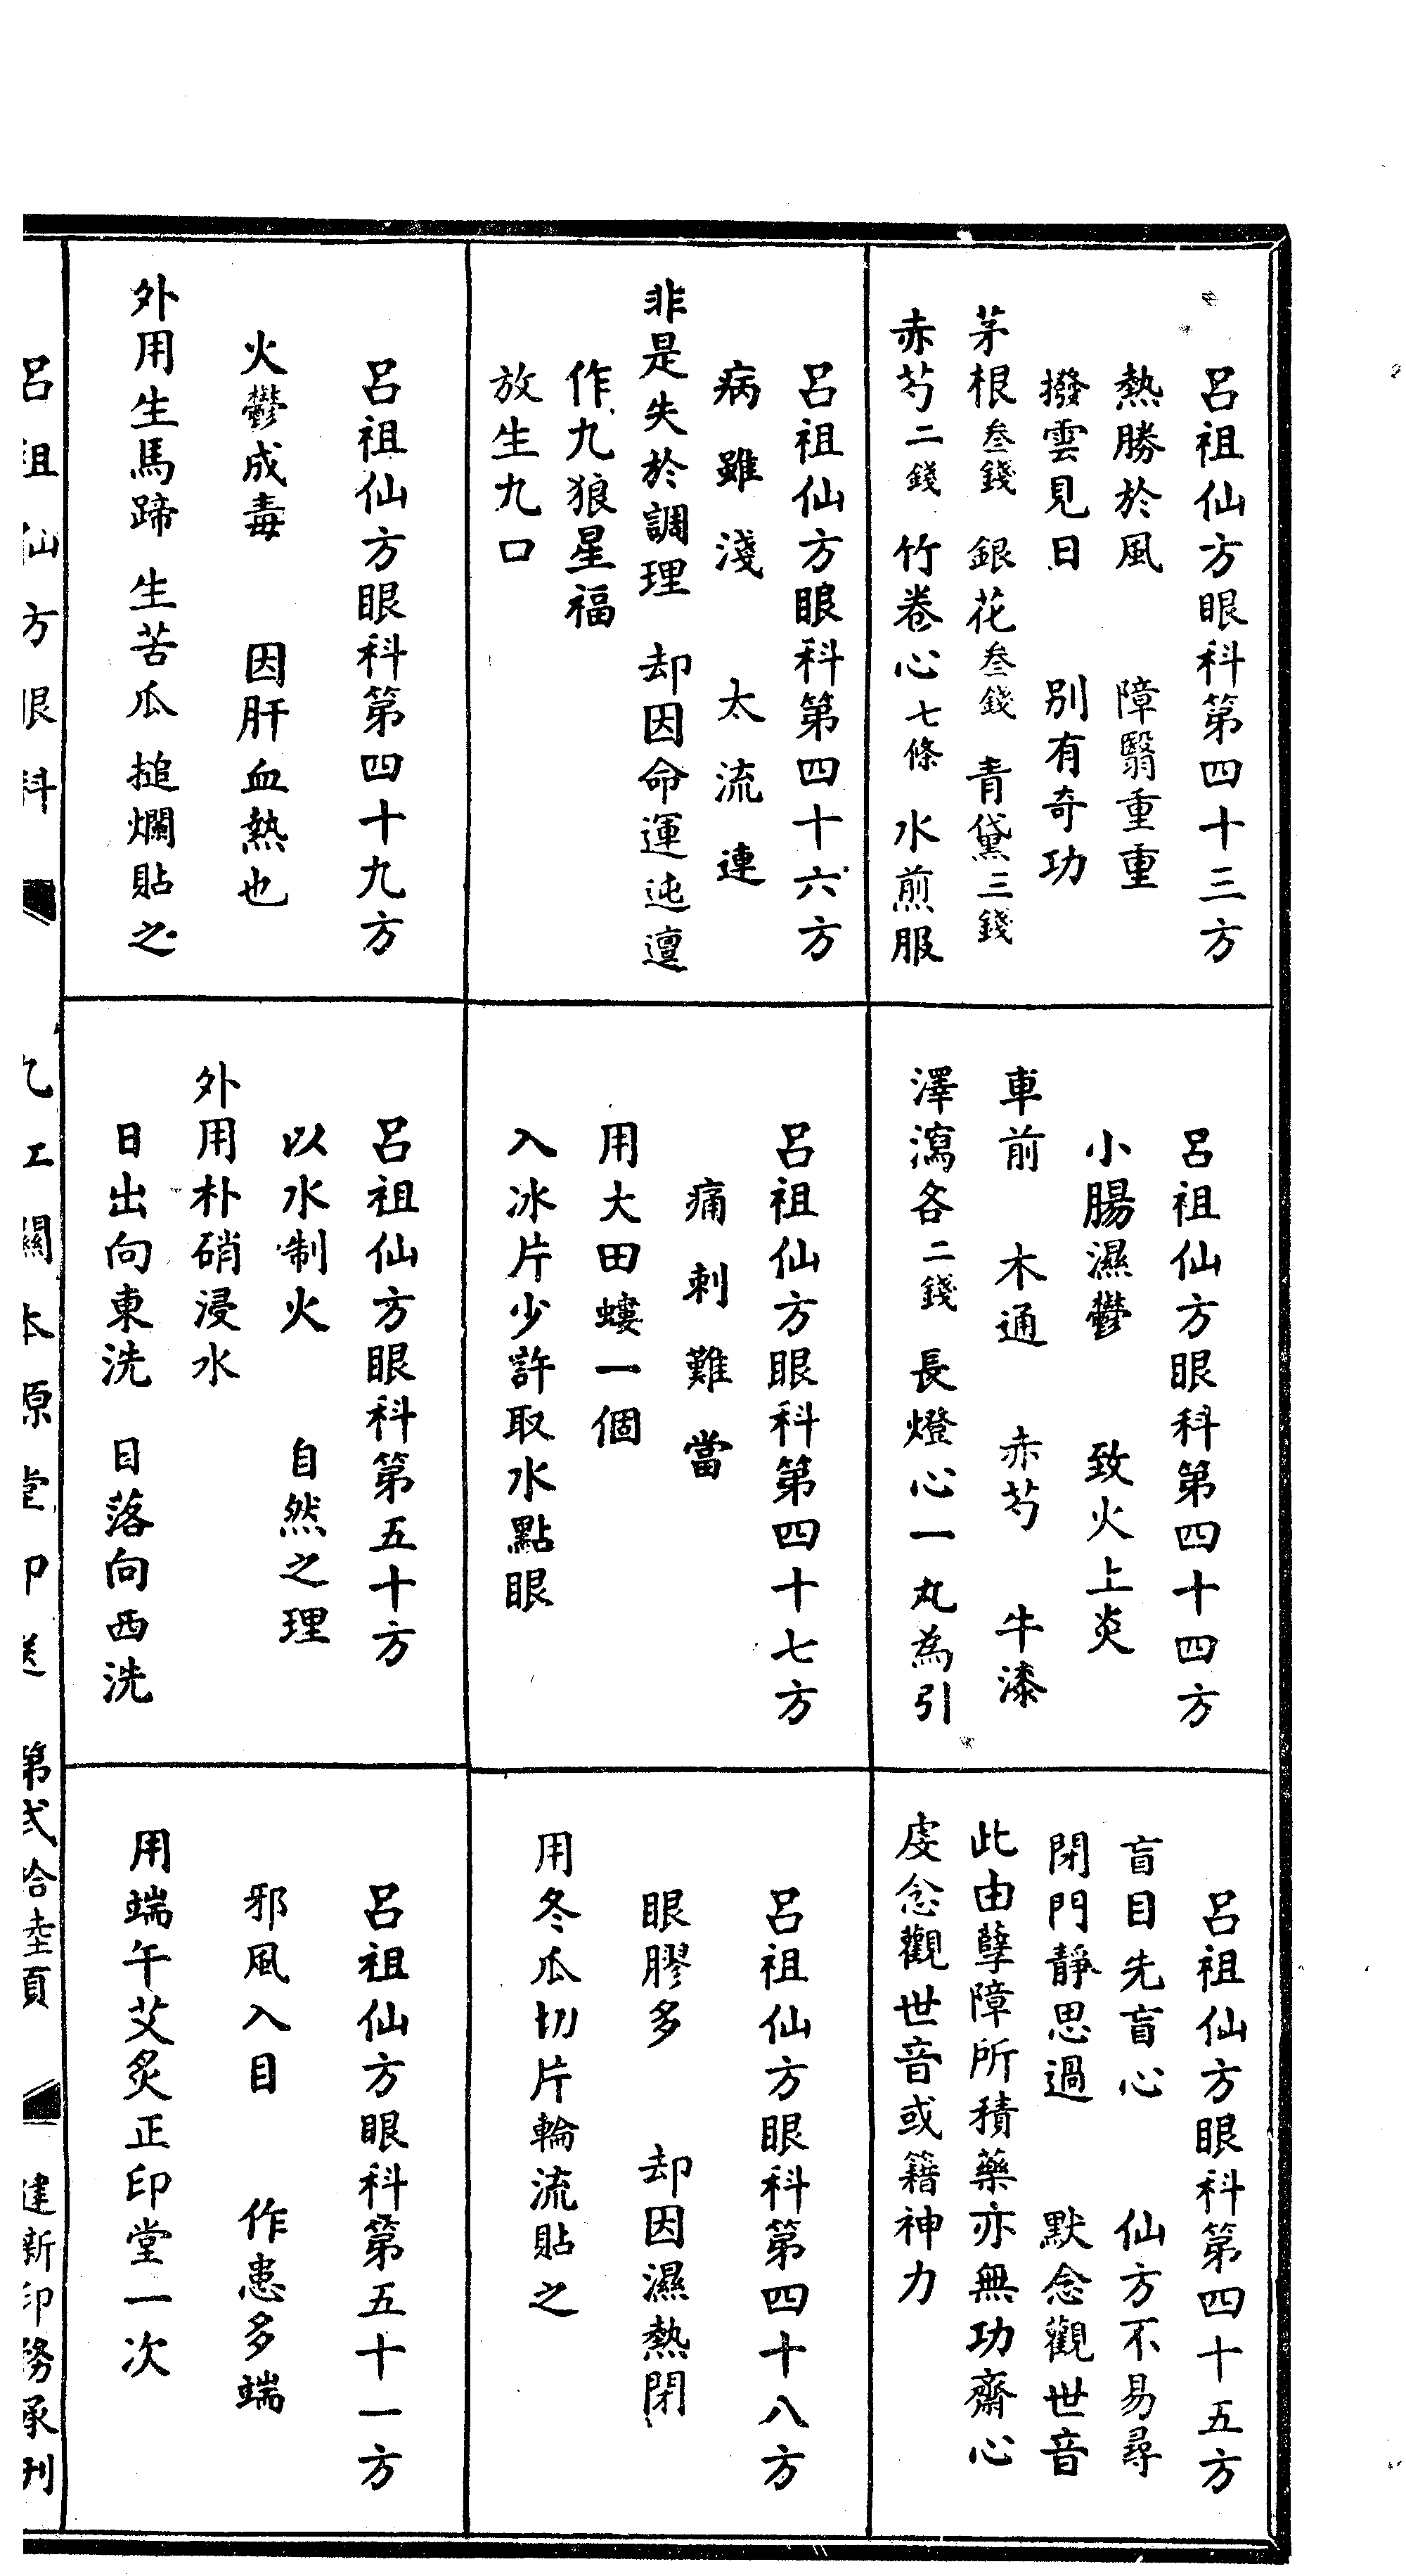 呂祖仙方眼科第四十三方
熱勝於風　障翳重重
撥雲見日　別有奇功
茅根叁錢　銀花叁錢　青黛三錢
赤芍二錢　竹卷心七條　水煎服
呂祖仙方眼科第四十四方
小腸濕鬱　致火上炎
車前　木通　赤芍　牛漆
澤瀉各二錢　長燈心一丸為引
呂祖仙方眼科第四十五方
盲目先盲心　仙方不易尋
閉門靜思過　默念觀世音
此由孽障所積藥亦無功齋心
虔念觀世音或籍神力
呂祖仙方眼科第四十六方
病雖淺　太流連
非是失於調理　却因命運迍邅
作九狼星福
放生九口
呂祖仙方眼科第四十七方
痛刺難當
用大田螻一個
入冰片少許取水點眼
呂祖仙方眼科第四十八方
眼膠多　却因濕熱閉
用冬瓜切片輪流貼之
呂祖仙方眼科第四十九方
火鬱成毒　因肝血熱也
外用生馬蹄　生苦瓜　搥爛貼之
呂祖仙方眼科第五十方
以水制火　自然之理
外用朴硝浸水
日出向東洗　日落向西洗
呂祖仙方眼科第五十一方
邪風入目　作患多端
用端午艾炙正印堂一次
呂祖仙方眼科　九江關本原堂印送　第弍拾陸頁　建新印務承刊